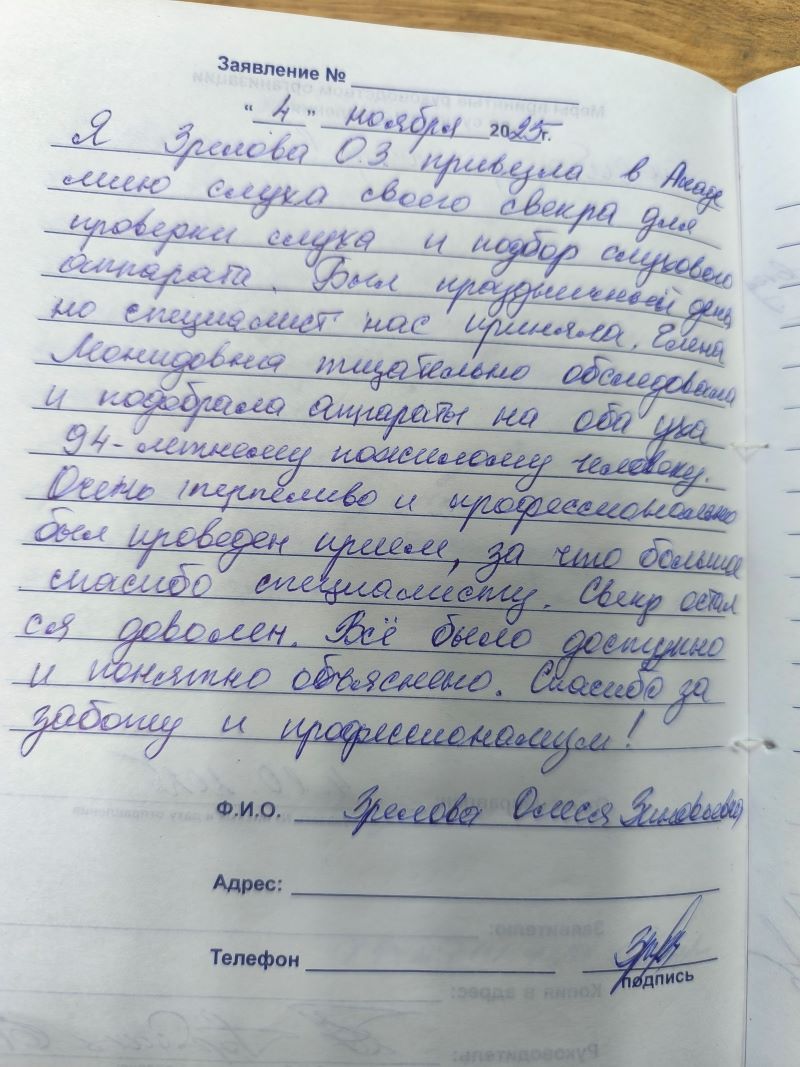 Заявление №
" 4 " ноября 2025г.
Я Зрелова О.З. привезла в Акаде
мию слуха своего свекра для
проверки слуха и подбор слухового
аппарата. Был праздничный день,
но специалист нас приняла. Елена
Леонидовна тщательно обследовала
и подобрала аппараты на оба уха
94-летнему пожилому человеку.
Очень терпеливо и профессионально
был проведен прием, за что большое
спасибо специалисту. Свекр остал
ся доволен. Всё было доступно
и понятно объяснено. Спасибо за
заботу и профессионализм!
Ф.И.О. Зрелова Олеся Зиновьевна
Адрес:
Телефон
подпись